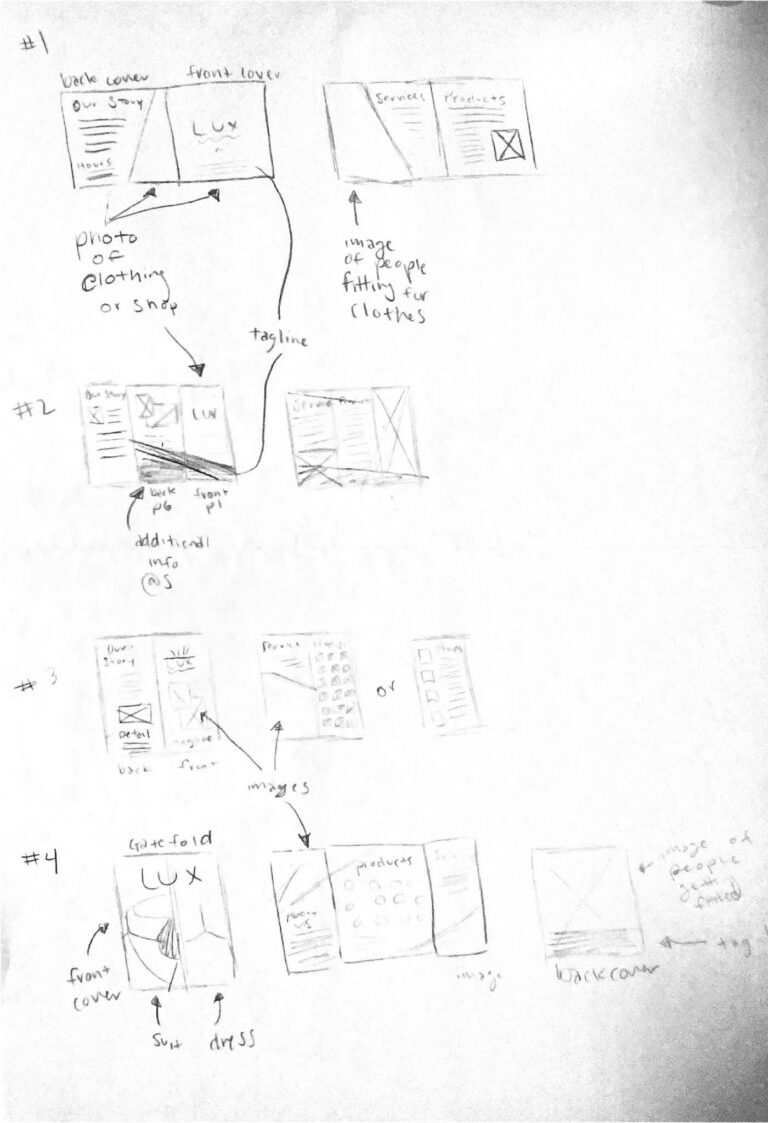 #1
back cover
front cover
Our Story
Hours
LUX
Services
Products
photo
of
clothing
or shop
image
of people
fitting for
clothes
tagline
#2
Our Story
LUX
back
p6
front
p1
additional
info
@S
#3
Our
Story
Detail
back
LUX
tagline
front
or
images
#4
Gatefold
LUX
front
cover
suit
dress
About
us
products
image
image of
people
getting
fitted
back cover